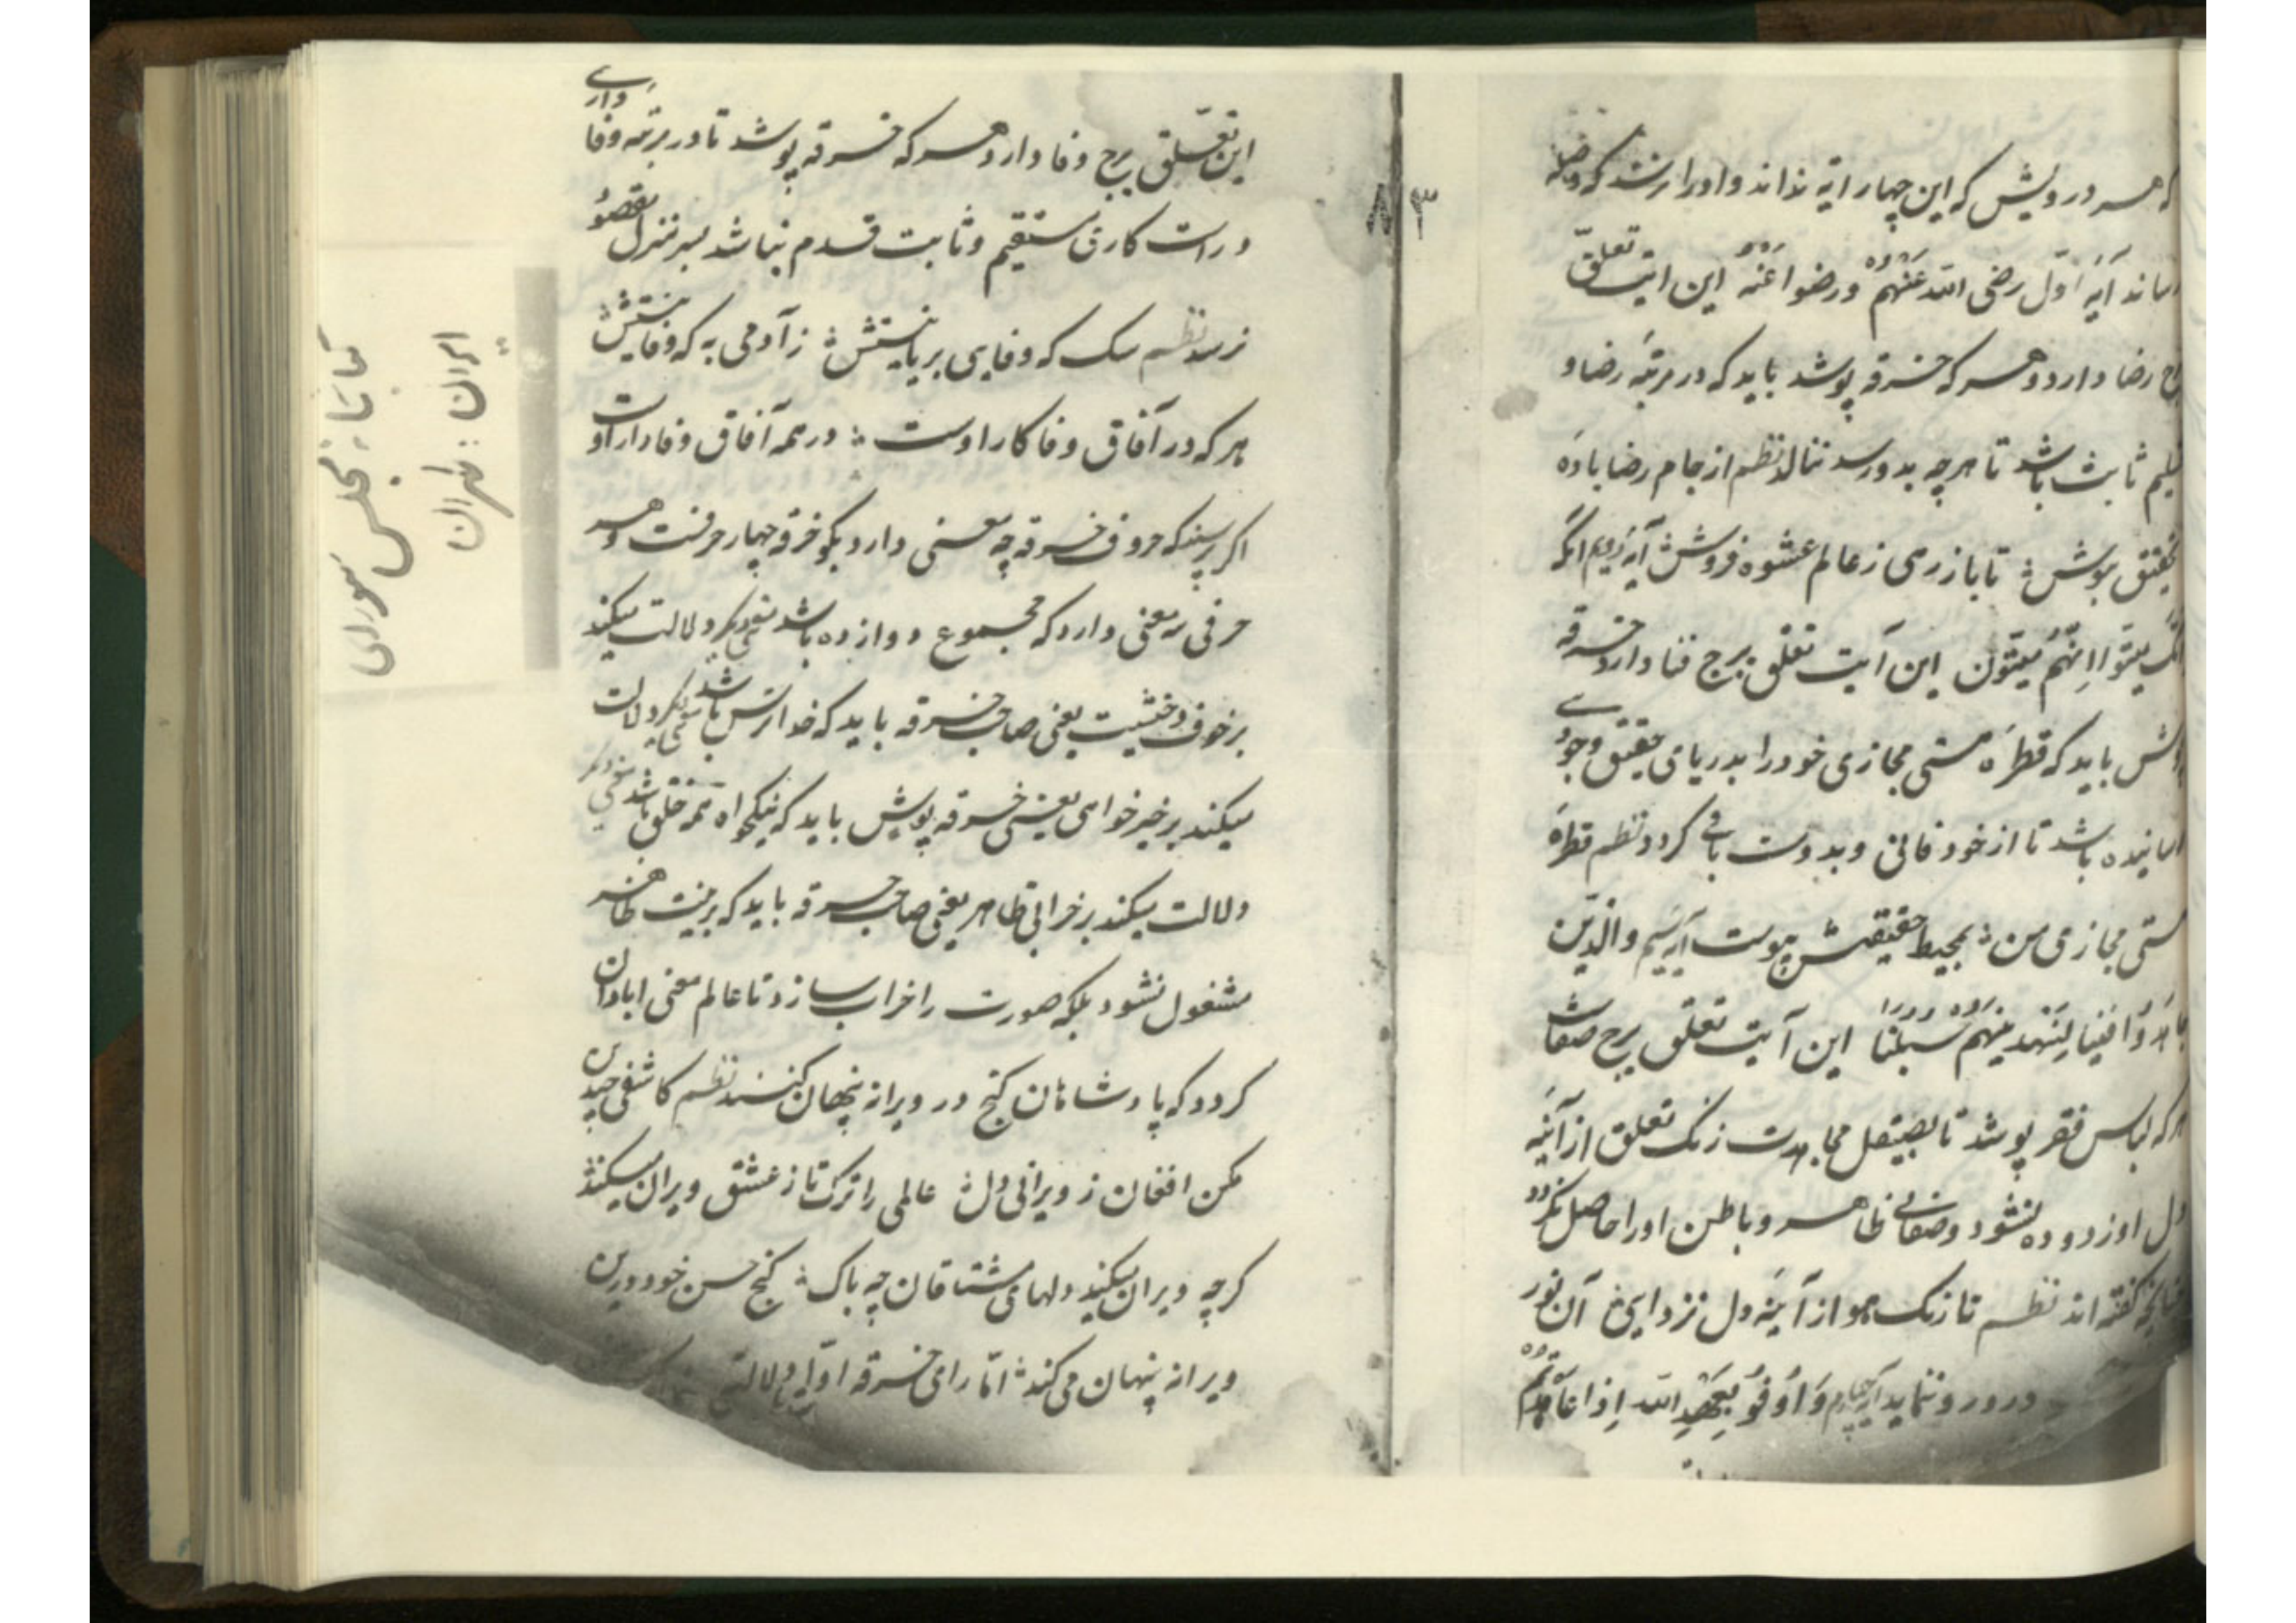 که هر درویش که این چهار ایه نداند و او را نرسد که خرقه
آیهٔ اول رضی الله عنهم ورضوا عنه این ایت تعلق
رضا دارد و هر که خرقه پوشد باید که در مرتبه رضا و
ثابت باشد تا هر چه بدو رسد ننالد نظم از جام رضا باده
تحقیق بنوش تا باز رهی ز عالم عشوه فروش آیه دویم انک
میت و انهم میتون این آیت تعلق ببرج فنا دارد خرقه
باید که قطره هستی مجازی خود را بدریای حقیق وجودی
باشد تا از خود فانی و بدوست باقی گردد نظم قطره
هستی مجازی من بمحیط حقیقتش پیوست آیه سیم والذین
جاهدوا فینا لنهدینهم سبلنا این آیت تعلق ببرج صفا
هر که لباس فقر پوشد تا بصیقل مجاهدت زنک تعلق از آئینه
دل او زدوده نشود و صفائی ظاهر و باطن او را حاصل نگردد
چنانچه گفته اند نظم تا زنک هوا از آینه دل نزدایی آن نور
درو رو ننماید آیه چهارم و اوفو بعهد الله اذا عاهدتم
۸۳
این تعلق ببرج وفا دارد هر که خرقه پوشد تا در مرتبه وفاداری
و راست کاری مستقیم و ثابت قدم نباشد بسر منزل مقصود
نرسد نظم سک که وفایی بر بایستش ز آدمی به که وفا نیستش
هر که در آفاق وفا کار اوست در همه آفاق وفادار اوست
اکر پرسند که حروف خرقه چه معنی دارد بکو خرقه چهار حرفست و هر
حرفی سه معنی دارد که مجموع دوازده باشد دلالت میکند
بر خوف و خشیت یعنی صاحب خرقه باید که خدا ترس باشد دلالت
میکند بر خیر خواهی یعنی خرقه پوش باید که نیکخواه همه خلق باشد
دلالت میکند بر خرابی ظاهر یعنی صاحب خرقه باید که بزینت ظاهر
مشغول نشود بلکه صورت را خراب سازد تا عالم معنی ابادان
کردد که پادشاهان کنج در ویرانه پنهان کنند نظم کاشفی چندین
مکن افغان ز ویرانی دل عالمی را ترک تاز عشق ویران میکند
کرچه ویران میکند دلهای مشتاقان چه باک کنج حسن خود درین
ویرانه پنهان می کند اما رای خرقه اولی دلالت
کتابخانه مجلس شورای
ایران : طهران